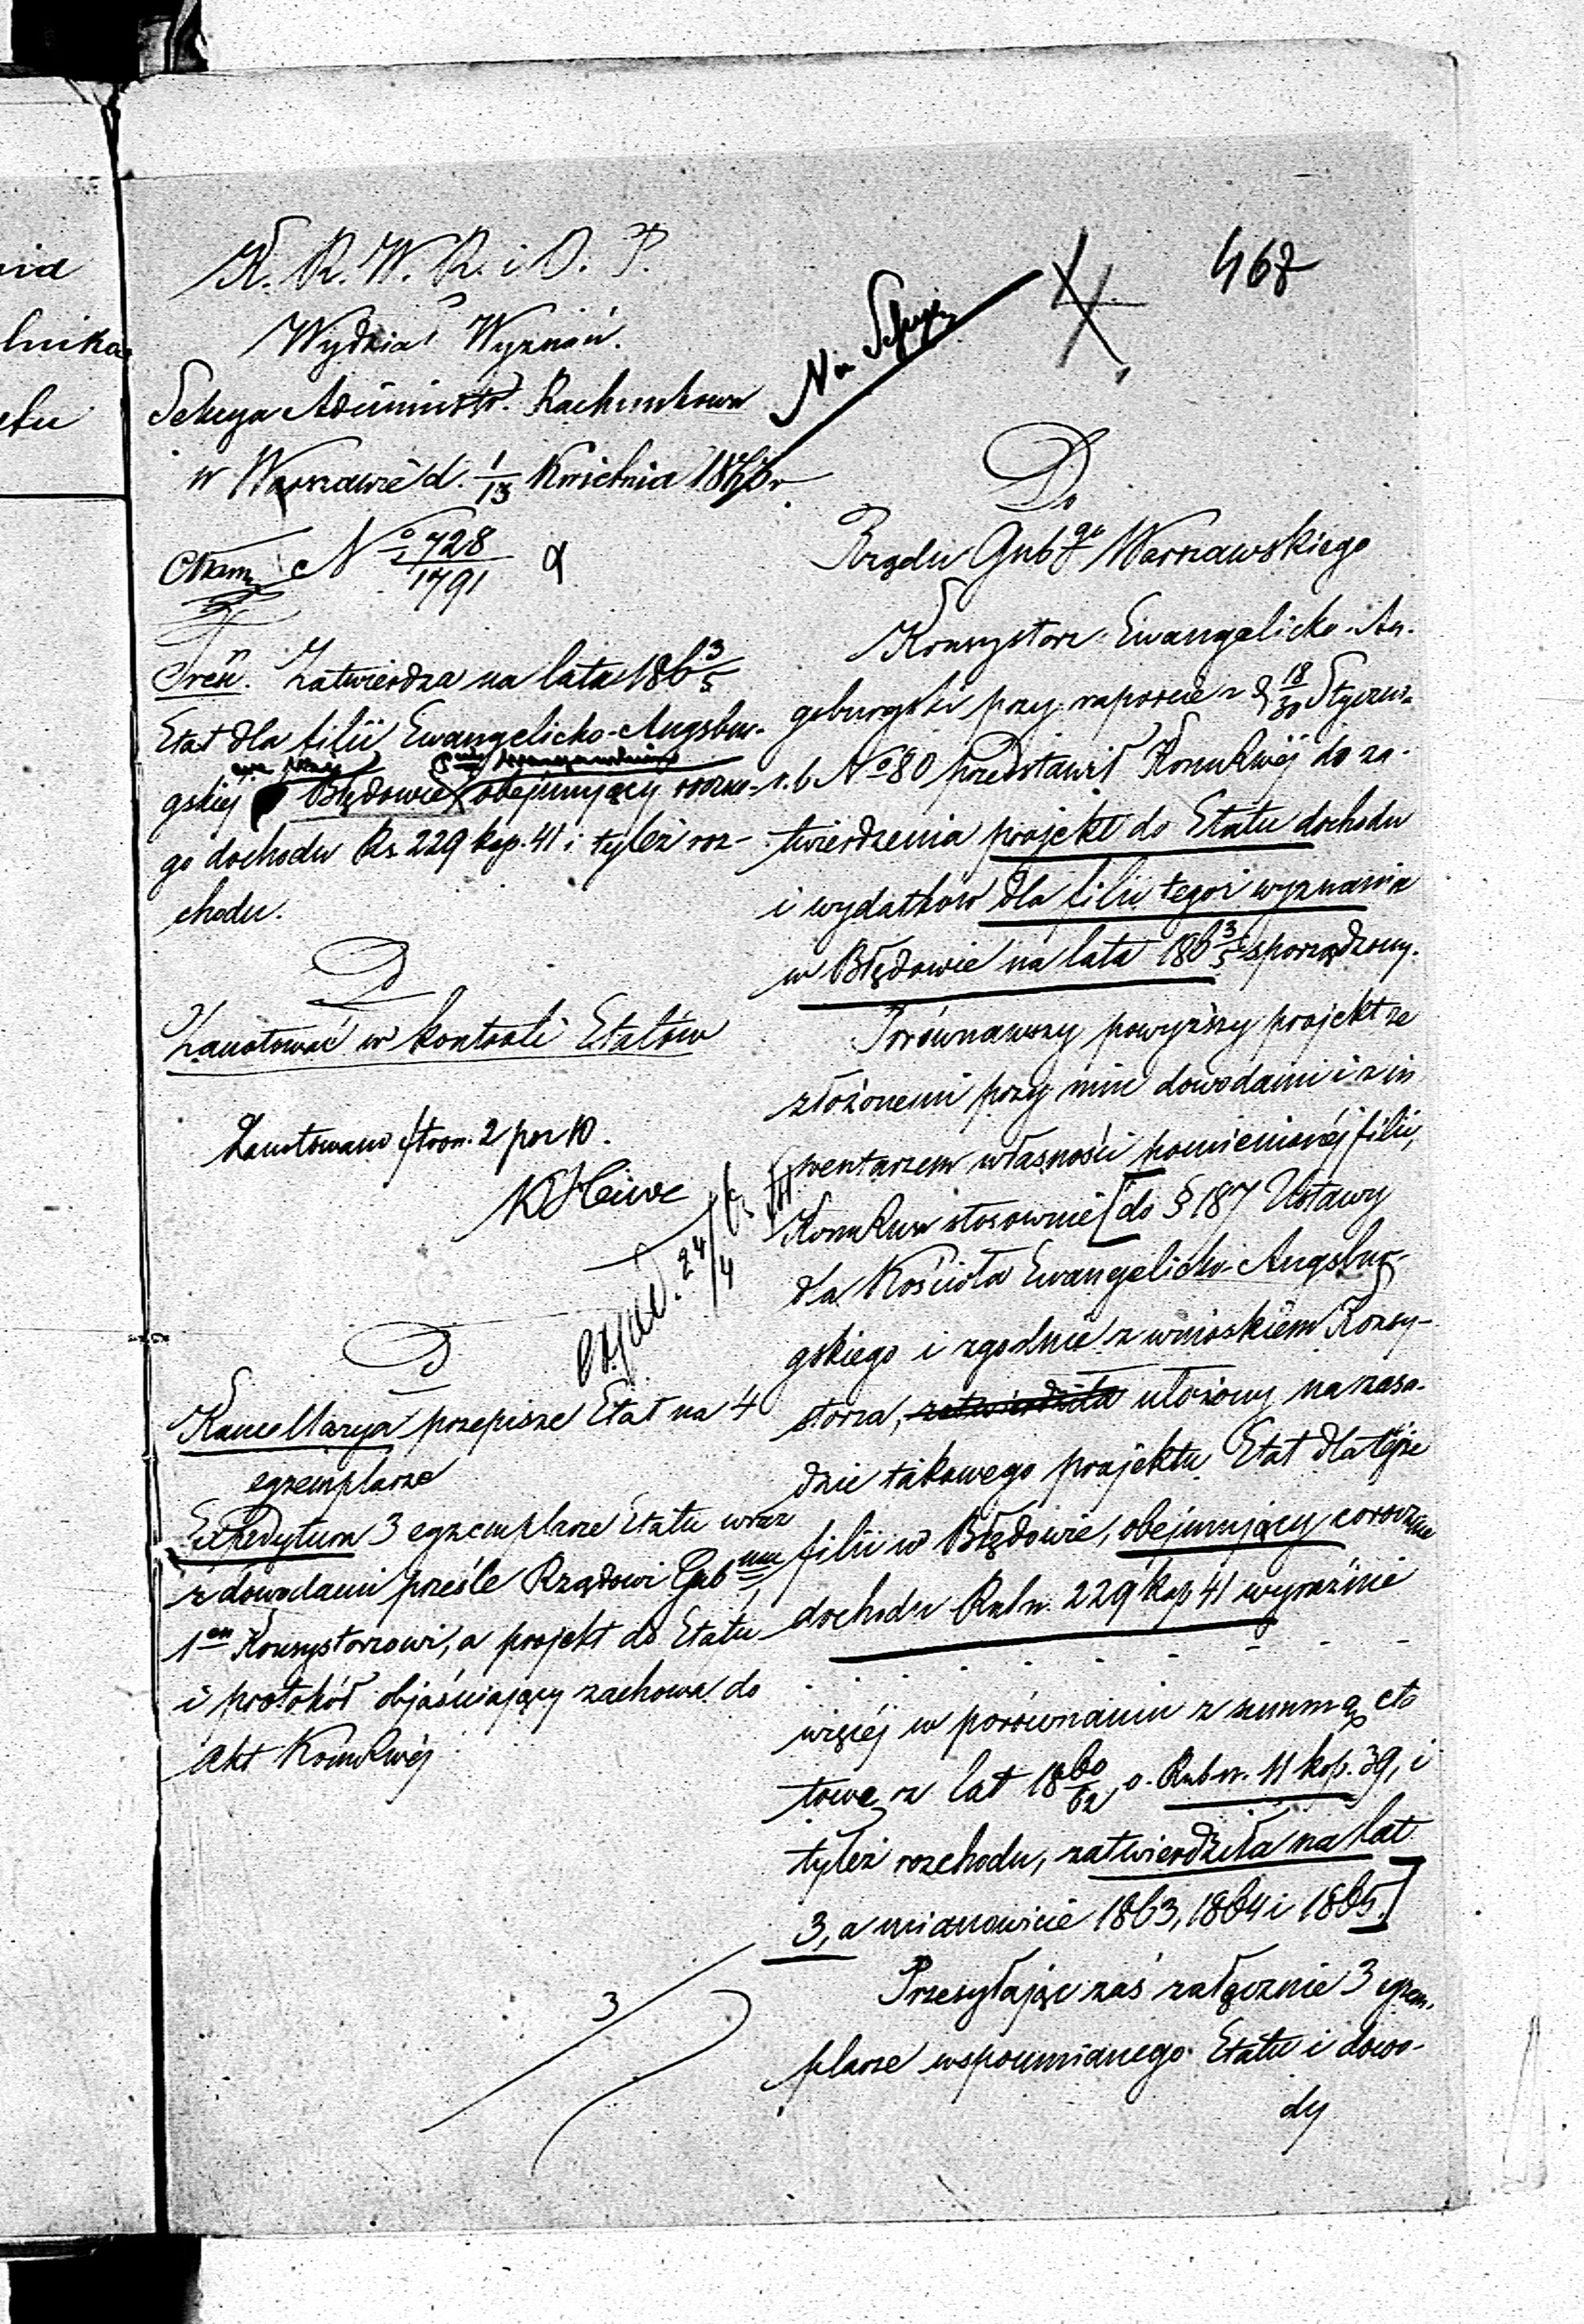 468
K. R. W. R. i O. P.
Wydział Wyznań.
Sekcya Administr. Rachunkowa
w Warszawie d. 1/13 Kwietnia 1863 r.
N° 728/1791
Treść. Zatwierdza na lata 186 3/5
Etat dla filii Ewangelicko-Augsbur-
gskiej Błędowie obejmujący roczne-
go dochodu Rs 229 kop. 41 i tyleż roz-
chodu.
D
Zanotować w kontroli Etatów
Zanotowano stron. 2 poz 10.
24/4
D
Kancellarya przepisze Etat na 4
egzemplarze
Expedytura 3 egzemplarze Etatu wraz
z dowodami prześle Rządowi Gub mu
1en Konsystorzowi, a projekt do Etatu
i protokół objaśniający zachowa do
akt KomRwéj
3
Do
Rządu Gub go Warszawskiego
Konsystorz Ewangelicko-Au-
gsburgski przy raporcie z d 18/30 Stycznia
r. b. N° 80 przedstawił KomRwéj do za-
twierdzenia projekt do Etatu dochodu
i wydatków dla filii tegoż wyznania
w Błędowie na lata 186 3/5 sporządzony.
Porównawszy powyższy projekt ze
złożonemi przy nim dowodami i z in
wentarzem własności pomienionéj filii,
KomRwa stosownie [do § 187 Ustawy
dla Kościoła Ewangelicko-Augsbur-
gskiego i zgodnie z wnioskiem Konsy-
storza, zatwierdziła ułożony na zasa-
dzie takowego projektu Etat dla tejże
filii w Błędowie, obejmujący corocznie
dochodu Rubsr. 229 kop 41 wyraźnie
więcéj w porównaniu z summą eta
tową z lat 18 60/62 o Rubsr. 11 kop. 39, i
tyleż rozchodu, zatwierdziła na lat
3, a mianowicie 1863, 1864 i 1865.]
Przesyłając zaś załącznie 3 egzem.
plarze wspomnianego Etatu i dowo-
dy